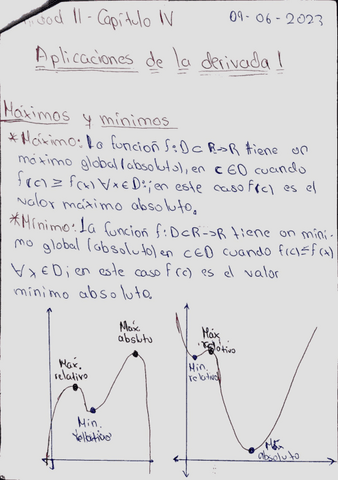 Unidad II - Capítulo IV 09-06-2023
Aplicaciones de la derivada!
Máximos y mínimos
*Máximo: La función f:D⊂R→R tiene un
máximo global (absoluto), en c∈D cuando
f(c) ≥ f(x) ∀x∈D; en este caso f(c) es el
valor máximo absoluto.
*Mínimo: La función f:D⊂R→R tiene un míni-
mo global (absoluto) en c∈D cuando f(c)≤f(x)
∀x∈D; en este caso f(c) es el valor
mínimo absoluto.
Máx.
absoluto
Máx.
relativo
Min.
relativo
Máx.
relativo
Min.
relativo
absoluto